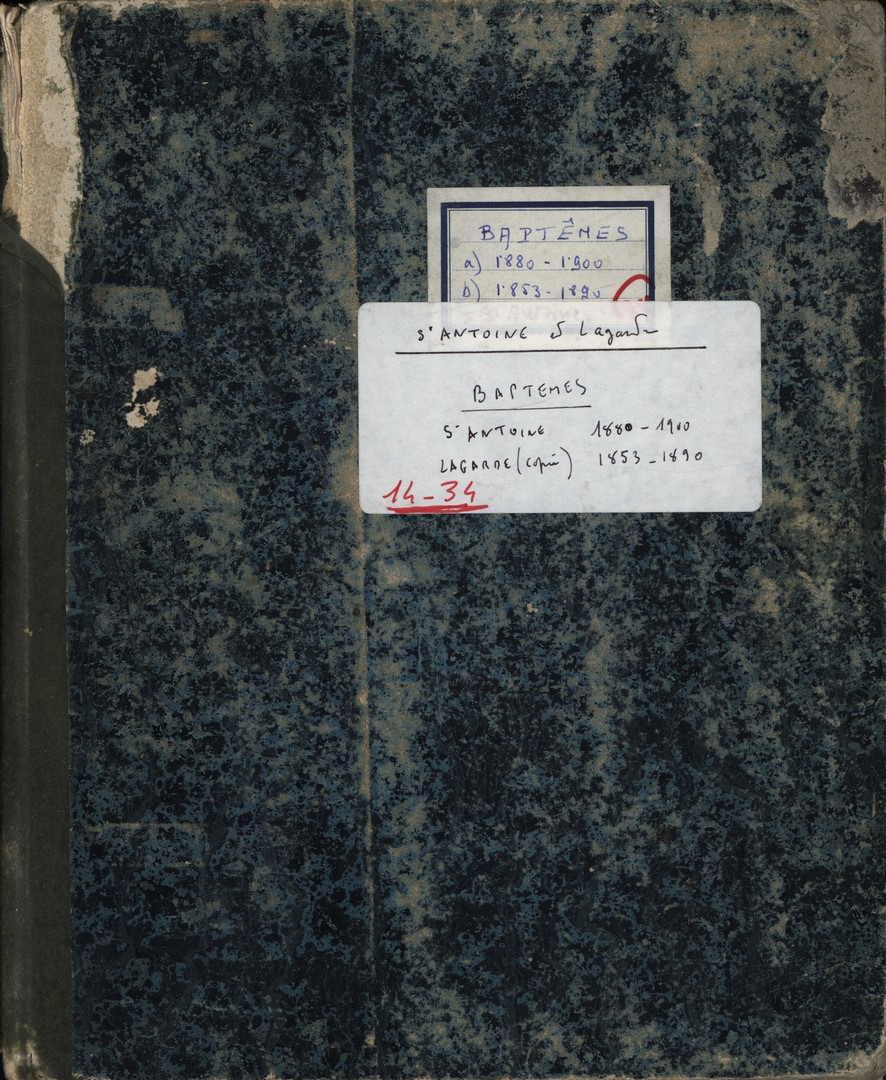 BAPTÊMES
a) 1880 - 1900
b) 1853 - 1890
S' ANTOINE & Lagarde
BAPTEMES
S' ANTOINE 1880 - 1900
LAGARDE (copie) 1853 - 1890
14 - 34